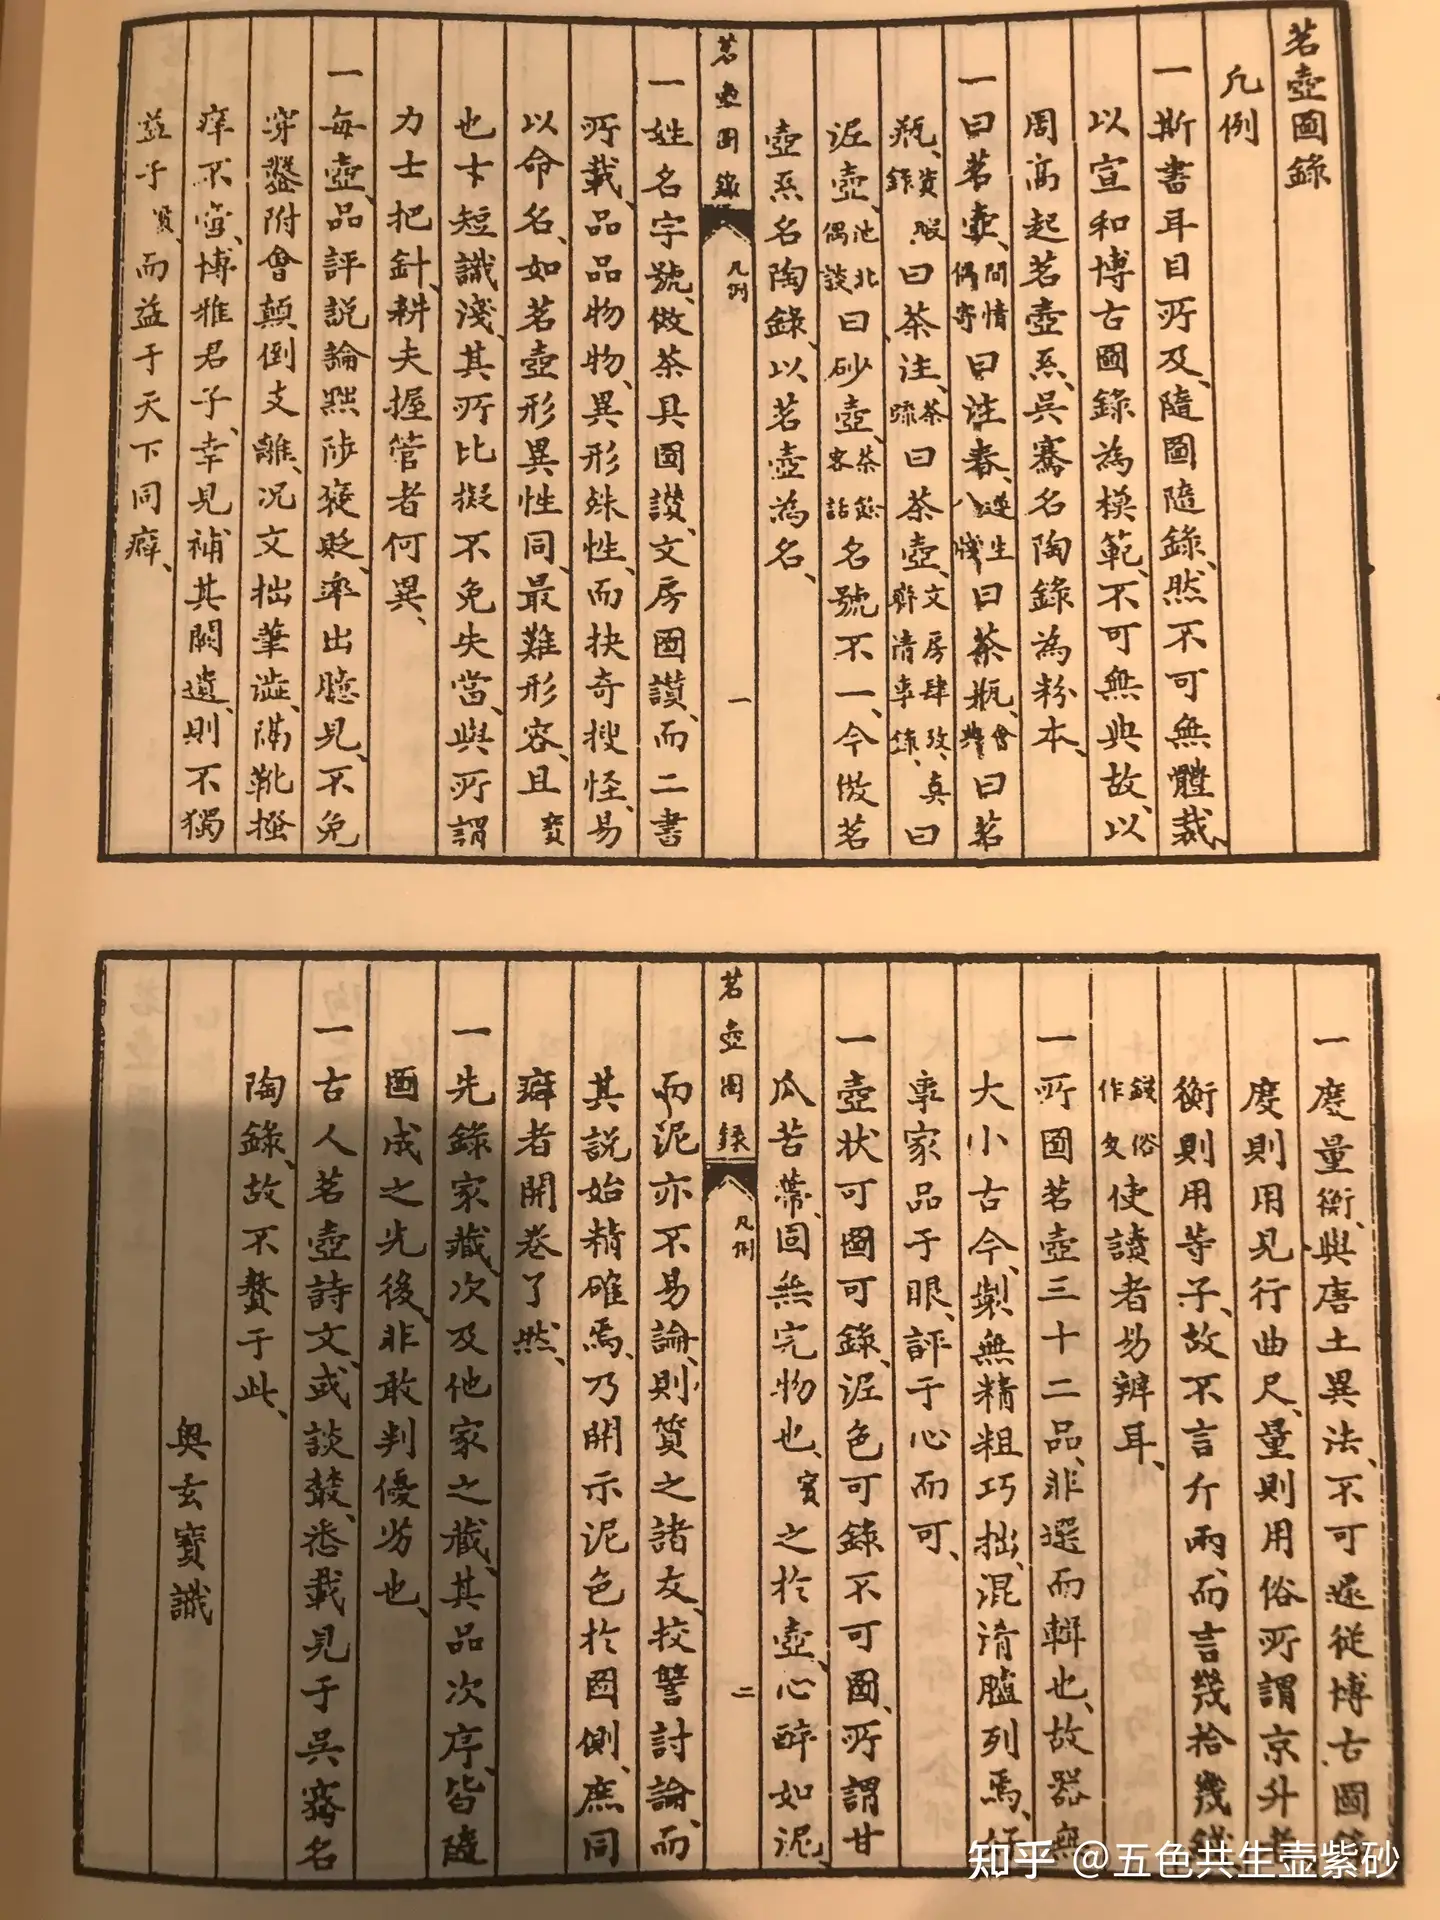 茗壺圖錄
凡例
一斯書耳目所及、隨圖隨錄、然不可無體裁、
以宣和博古圖錄為模範、不可無典故、以
周高起茗壺系、吳騫名陶錄為粉本、
一曰茗壺、間情偶寄曰注春、遵生八牋曰茶瓶、會典曰茗
瓶、資暇錄曰茶注、茶疏曰茶壺、文房肆攷、真齊清事錄、曰
泥壺、池北偶談曰砂壺、茶餘客話名號不一、今倣茗
壺系名陶錄、以茗壺為名、
茗壺圖錄 凡例 一
一姓名字號、倣茶具圖讚、文房圖讚、而二書
所載、品品物物、異形殊性、而抉奇搜怪、易
以命名、如茗壺形異性同、最難形容、且寶
也才短識淺、其所比擬不免失當、與所謂
力士把針、耕夫握管者何異、
一每壺、品評說論黜陟褒貶、率出臆見、不免
穿鑿附會顛倒支離、況文拙筆澁、隔靴搔
痒不啻、博雅君子、幸見補其闕遺、則不獨
益于寶、而益于天下同癖、
一度量衡、與唐土異法、不可遽從博古圖
度則用曲尺、量則用俗所謂京升
衡則用等子、故不言斤兩、而言幾拾幾
錢俗作匁使讀者易辨耳、
一所圖茗壺三十二品、非選而輯也、故器無
大小古今、製無精粗巧拙、混淆臚列焉、
專家品于眼、評于心而可、
一壺狀可圖可錄、泥色可錄不可圖、所謂甘
瓜苦蒂、固無完物也、寶之於壺、心醉如泥、
茗壺圖錄 凡例 二
而泥亦不易論、則質之諸友、挍讐討論、而
其說始精確焉、乃開示泥色於圖側、庶同
癖者開卷了然、
一先錄家藏、次及他家之藏、其品次序、皆隨
圖成之先後、非敢判優劣也、
一古人茗壺詩文、或談叢、悉載見于吳騫名
陶錄、故不贅于此、
奧玄寶識
知乎 @五色共生壶紫砂